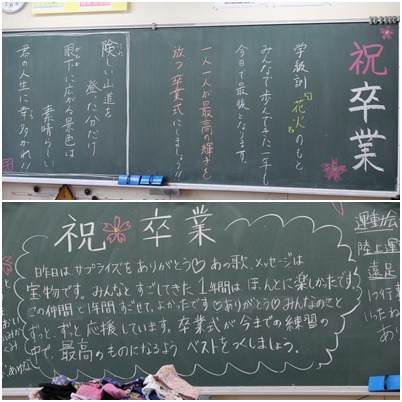 祝卒業
学級訓「花火」のもと
みんなで歩んできた一年も
今日で最後となります。
一人一人が最高の輝きを
放つ卒業式にしましょう!!
険しい山道を
登った分だけ
眼下に広がる景色は
素晴らしい
君の人生に幸多かれ!!
祝 卒業
昨日は、サプライズをありがとう♡あの歌、メッセージは
宝物です。みんなとすごしてきた1年間は、ほんとに楽しかったです。
この仲間と1年間すごせて、よかったです♡ありがとう♡みんなのこと
ずっと、ずっと応援しています。卒業式が今までの練習の
中で、最高のものになるよう ベストをつくしましょう。
運動会
陸上運
遠足